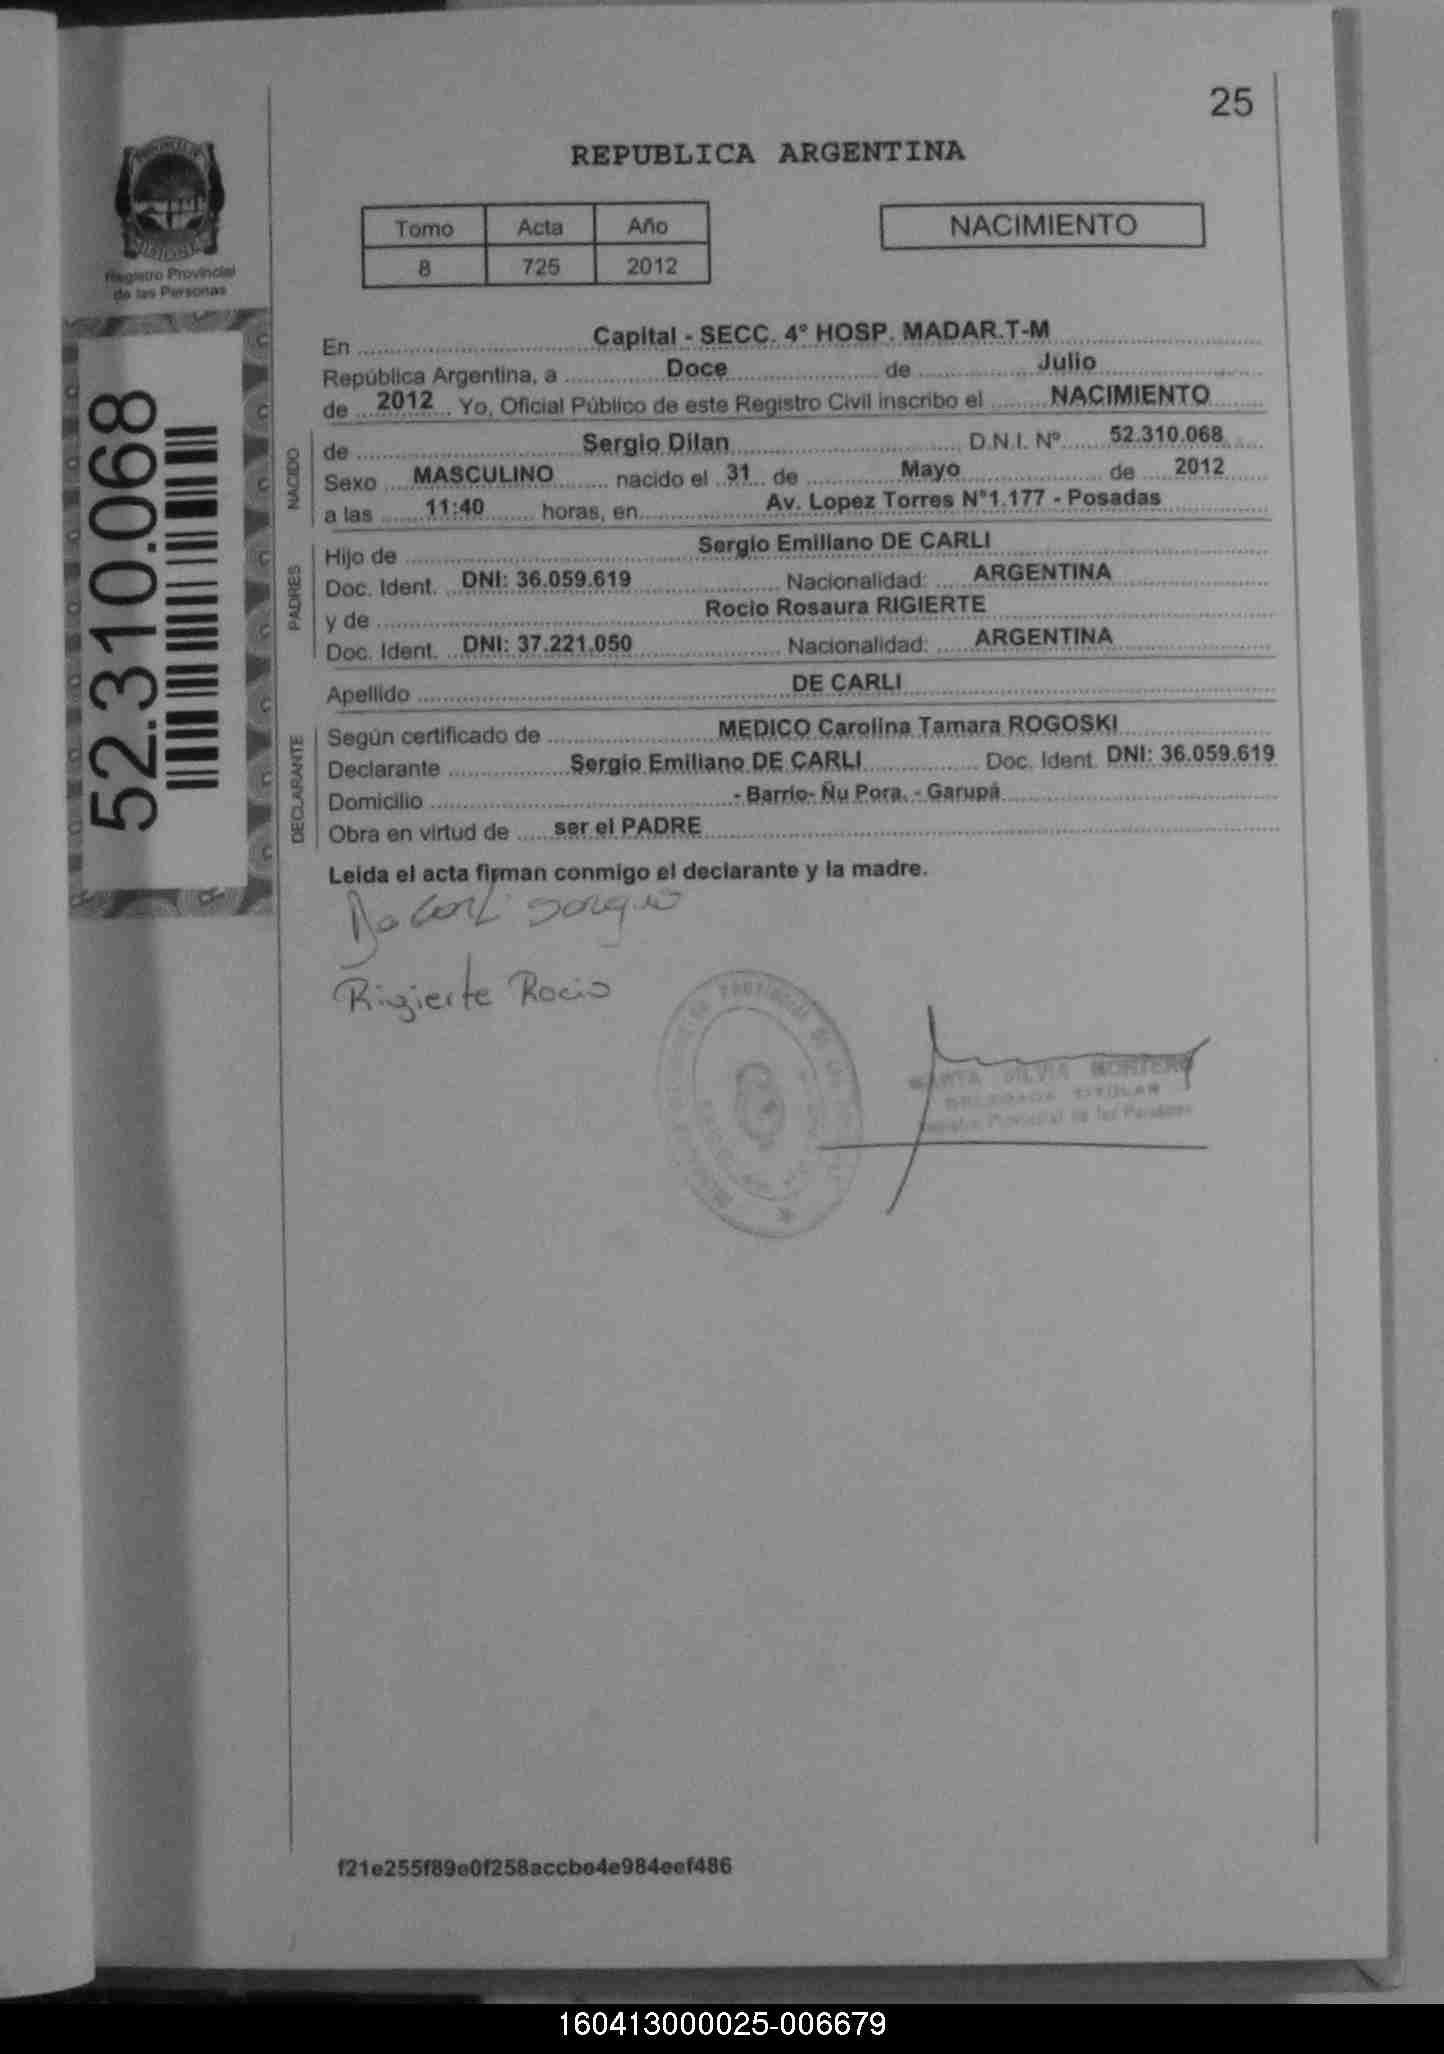 25
REPUBLICA ARGENTINA
Registro Provincial
de las Personas
Tomo Acta Año
8 725 2012
NACIMIENTO
52.310.068
En Capital - SECC. 4° HOSP. MADAR.T-M
República Argentina, a Doce de Julio
de 2012 Yo, Oficial Público de este Registro Civil inscribo el NACIMIENTO
NACIDO
de Sergio Dilan D.N.I. Nº 52.310.068
Sexo MASCULINO nacido el 31 de Mayo de 2012
a las 11:40 horas, en Av. Lopez Torres N°1.177 - Posadas
PADRES
Hijo de Sergio Emiliano DE CARLI
Doc. Ident. DNI: 36.059.619 Nacionalidad: ARGENTINA
y de Rocio Rosaura RIGIERTE
Doc. Ident. DNI: 37.221.050 Nacionalidad: ARGENTINA
Apellido DE CARLI
DECLARANTE
Según certificado de MEDICO Carolina Tamara ROGOSKI
Declarante Sergio Emiliano DE CARLI Doc. Ident. DNI: 36.059.619
Domicilio - Barrio- Ñu Pora. - Garupá
Obra en virtud de ser el PADRE
Leida el acta firman conmigo el declarante y la madre.
De Carli Sergio
Rigierte Rocio
SILVIA
DELEGADA TITULAR
Provincial de las Personas
f21e255f89e0f258accbe4e984eef486
160413000025-006679